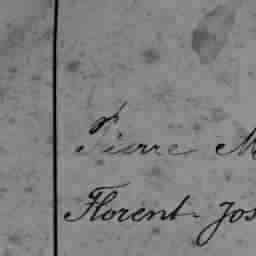 Pierre M
Florent Jos